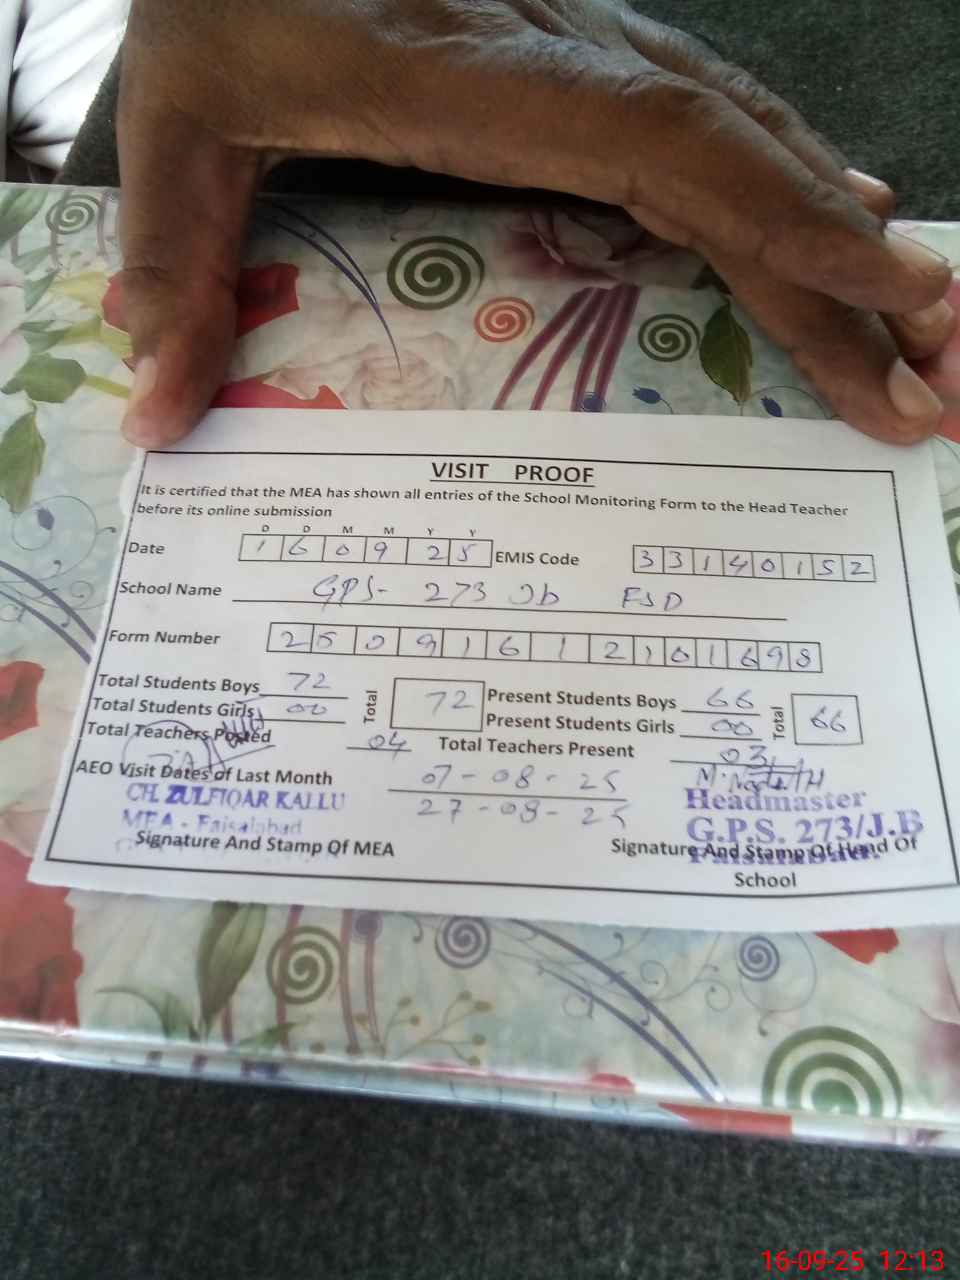 VISIT PROOF
It is certified that the MEA has shown all entries of the School Monitoring Form to the Head Teacher
before its online submission
D D M M Y Y
Date 1 6 0 9 2 5 EMIS Code 3 3 1 4 0 1 5 2
School Name GPS- 273 Jb FSD
Form Number 2 5 0 9 1 6 1 2 1 0 1 6 9 8
Total Students Boys 72 Total 72 Present Students Boys 66 Total 66
Total Students Girls 00 Present Students Girls 00
Total Teachers Posted 04 Total Teachers Present 03
AEO Visit Dates of Last Month 07-08-25
27-08-25
CH. ZULFIQAR KALLU
MEA - Faisalabad
Signature And Stamp Of MEA
Headmaster
G.P.S. 273/J.B
Faisalabad.
Signature And Stamp Of Head Of
School
16-09-25 12:13